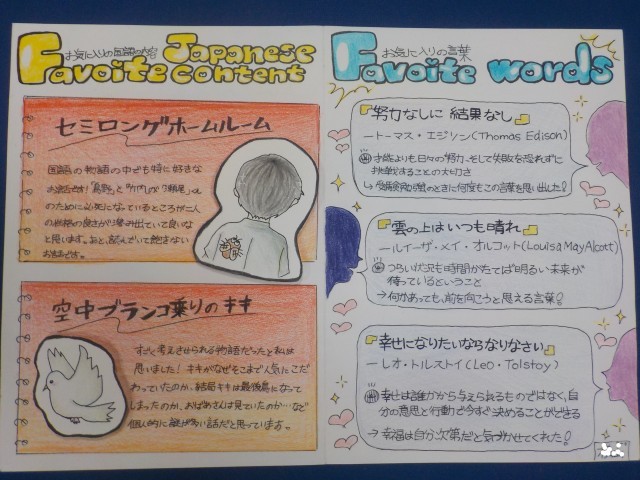 お気に入りの国語の内容
Favoite Japanese content
セミロングホームルーム
国語の物語の中でも特に好きな
お話です!「鳥野」と
のために必死になっているところが二人
の性格の良さが滲み出ていて良いな
と思います。あと、読んでいて飽きない
お話です。
空中ブランコ乗りのキキ
すごく考えさせられる物語だったと私は
思いました!キキがなぜそこまで人気にこだ
わっていたのか、結局キキは最後鳥になって
しまったのか、おばあさんは見ていたのか…など
個人的に謎が多い話だと思っています。
お気に入りの言葉
Favoite words
『努力なしに結果なし』
ートーマス・エジソン(Thomas Edison)
才能よりも日々の努力、そして失敗を恐れずに
挑戦することの大切さ
→受験勉強のときに何度もこの言葉を思い出した!
『雲の上はいつも晴れ』
ールイーザ・メイ・オルコット(Louisa May Alcott)
つらい状況も時間がたてば明るい未来が
待っているということ
→何かあっても、前を向こうと思える言葉!
『幸せになりたいならなりなさい』
ーレオ・トルストイ(Leo・Tolstoy)
幸せは誰かから与えられるものではなく、自
分の意思と行動で今すぐ決めることができる
→幸福は自分次第だと気づかせてくれた!